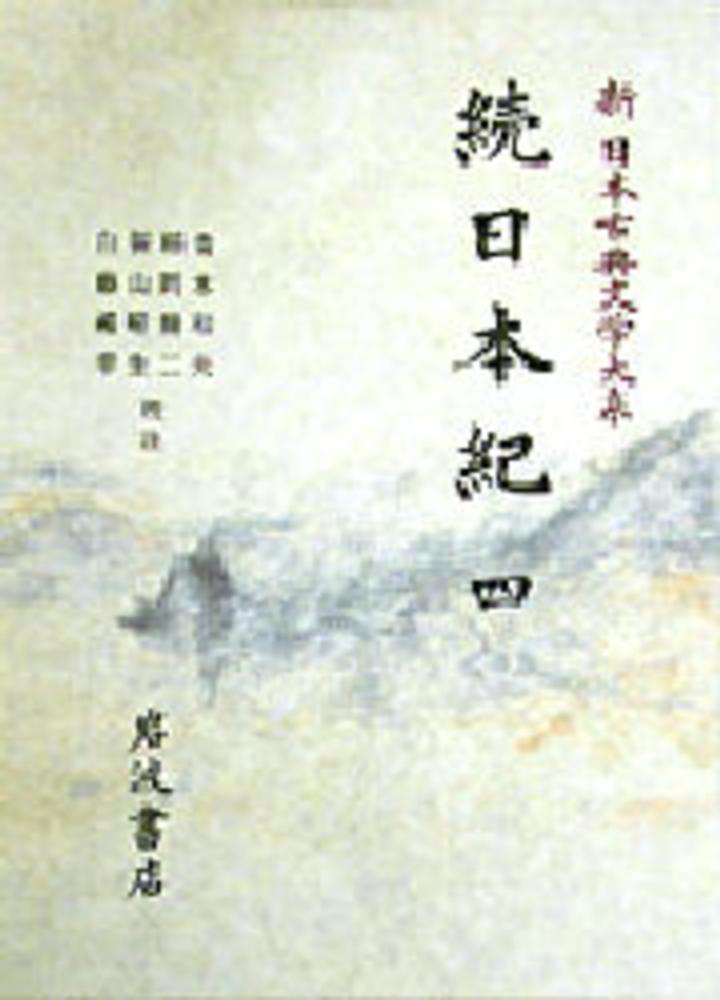 新日本古典文学大系
続日本紀 四
青木和夫
稲岡耕二
笹山晴生
白藤禮幸
校注
岩波書店